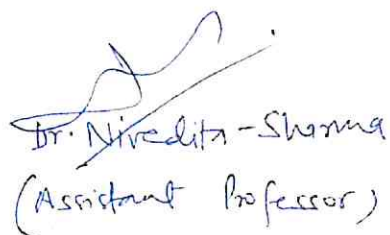 Dr. Nivedita-Sharma
(Assistant Professor)